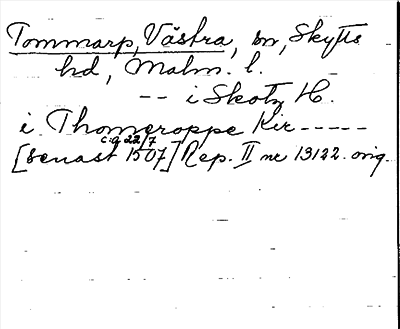 Tommarp, Västra, sn, Skytts
hd, Malm. l.
-- i Skotz H.
i Thomeroppe Kir-----
ca 22/7
[senast 1507] Rep. II nr 13122. orig.